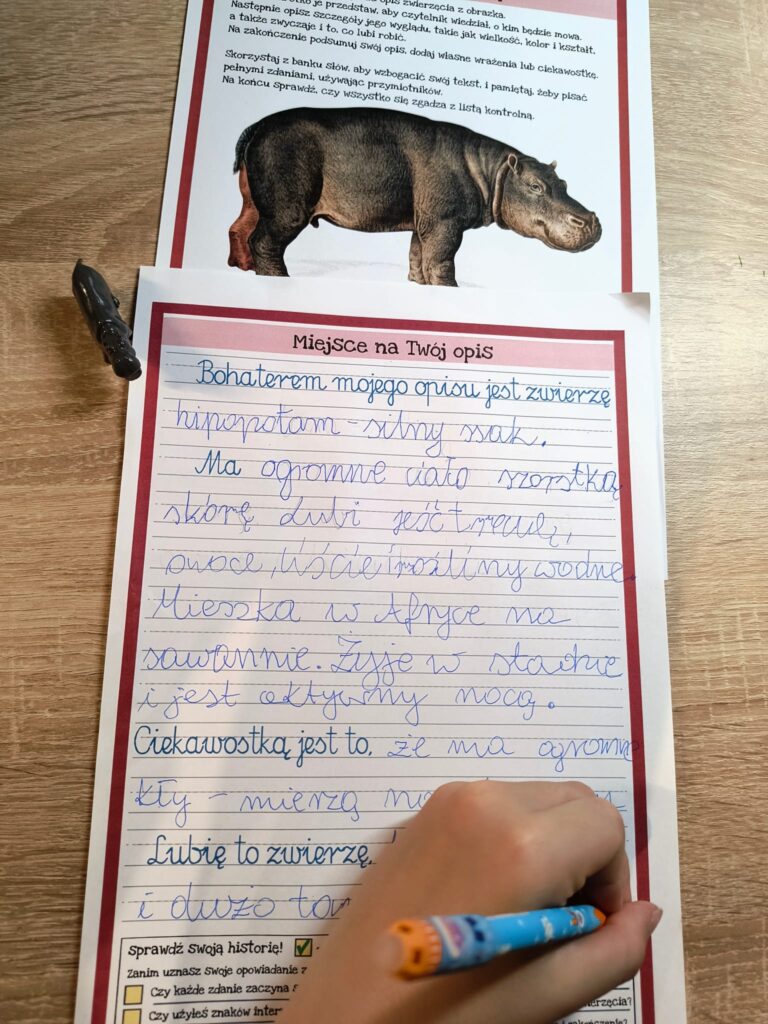 opis zwierzęcia z obrazka.
je przedstaw, aby czytelnik wiedział, o kim będzie mowa.
Następnie opisz szczegóły jego wyglądu, takie jak wielkość, kolor i kształt,
a także zwyczaje i to, co lubi robić.
Na zakończenie podsumuj swój opis, dodaj własne wrażenia lub ciekawostkę.
Skorzystaj z banku słów, aby wzbogacić swój tekst, i pamiętaj, żeby pisać
pełnymi zdaniami, używając przymiotników.
Na końcu sprawdź, czy wszystko się zgadza z listą kontrolną.
Miejsce na Twój opis
Bohaterem mojego opisu jest zwierzę
hipopotam - silny ssak.
Ma ogromne ciało szorstką
skórę Lubi jeść trawę,
owoce, liście i rośliny wodne.
Mieszka w Afryce na
sawannie. Żyje w stadzie
i jest aktywny nocą.
Ciekawostką jest to, że ma ogromne
kły - mierzą
Lubię to zwierzę,
i dużo
Sprawdź swoją historię!
Zanim uznasz swoje opowiadanie z
Czy każde zdanie zaczyna
Czy użyłeś znaków